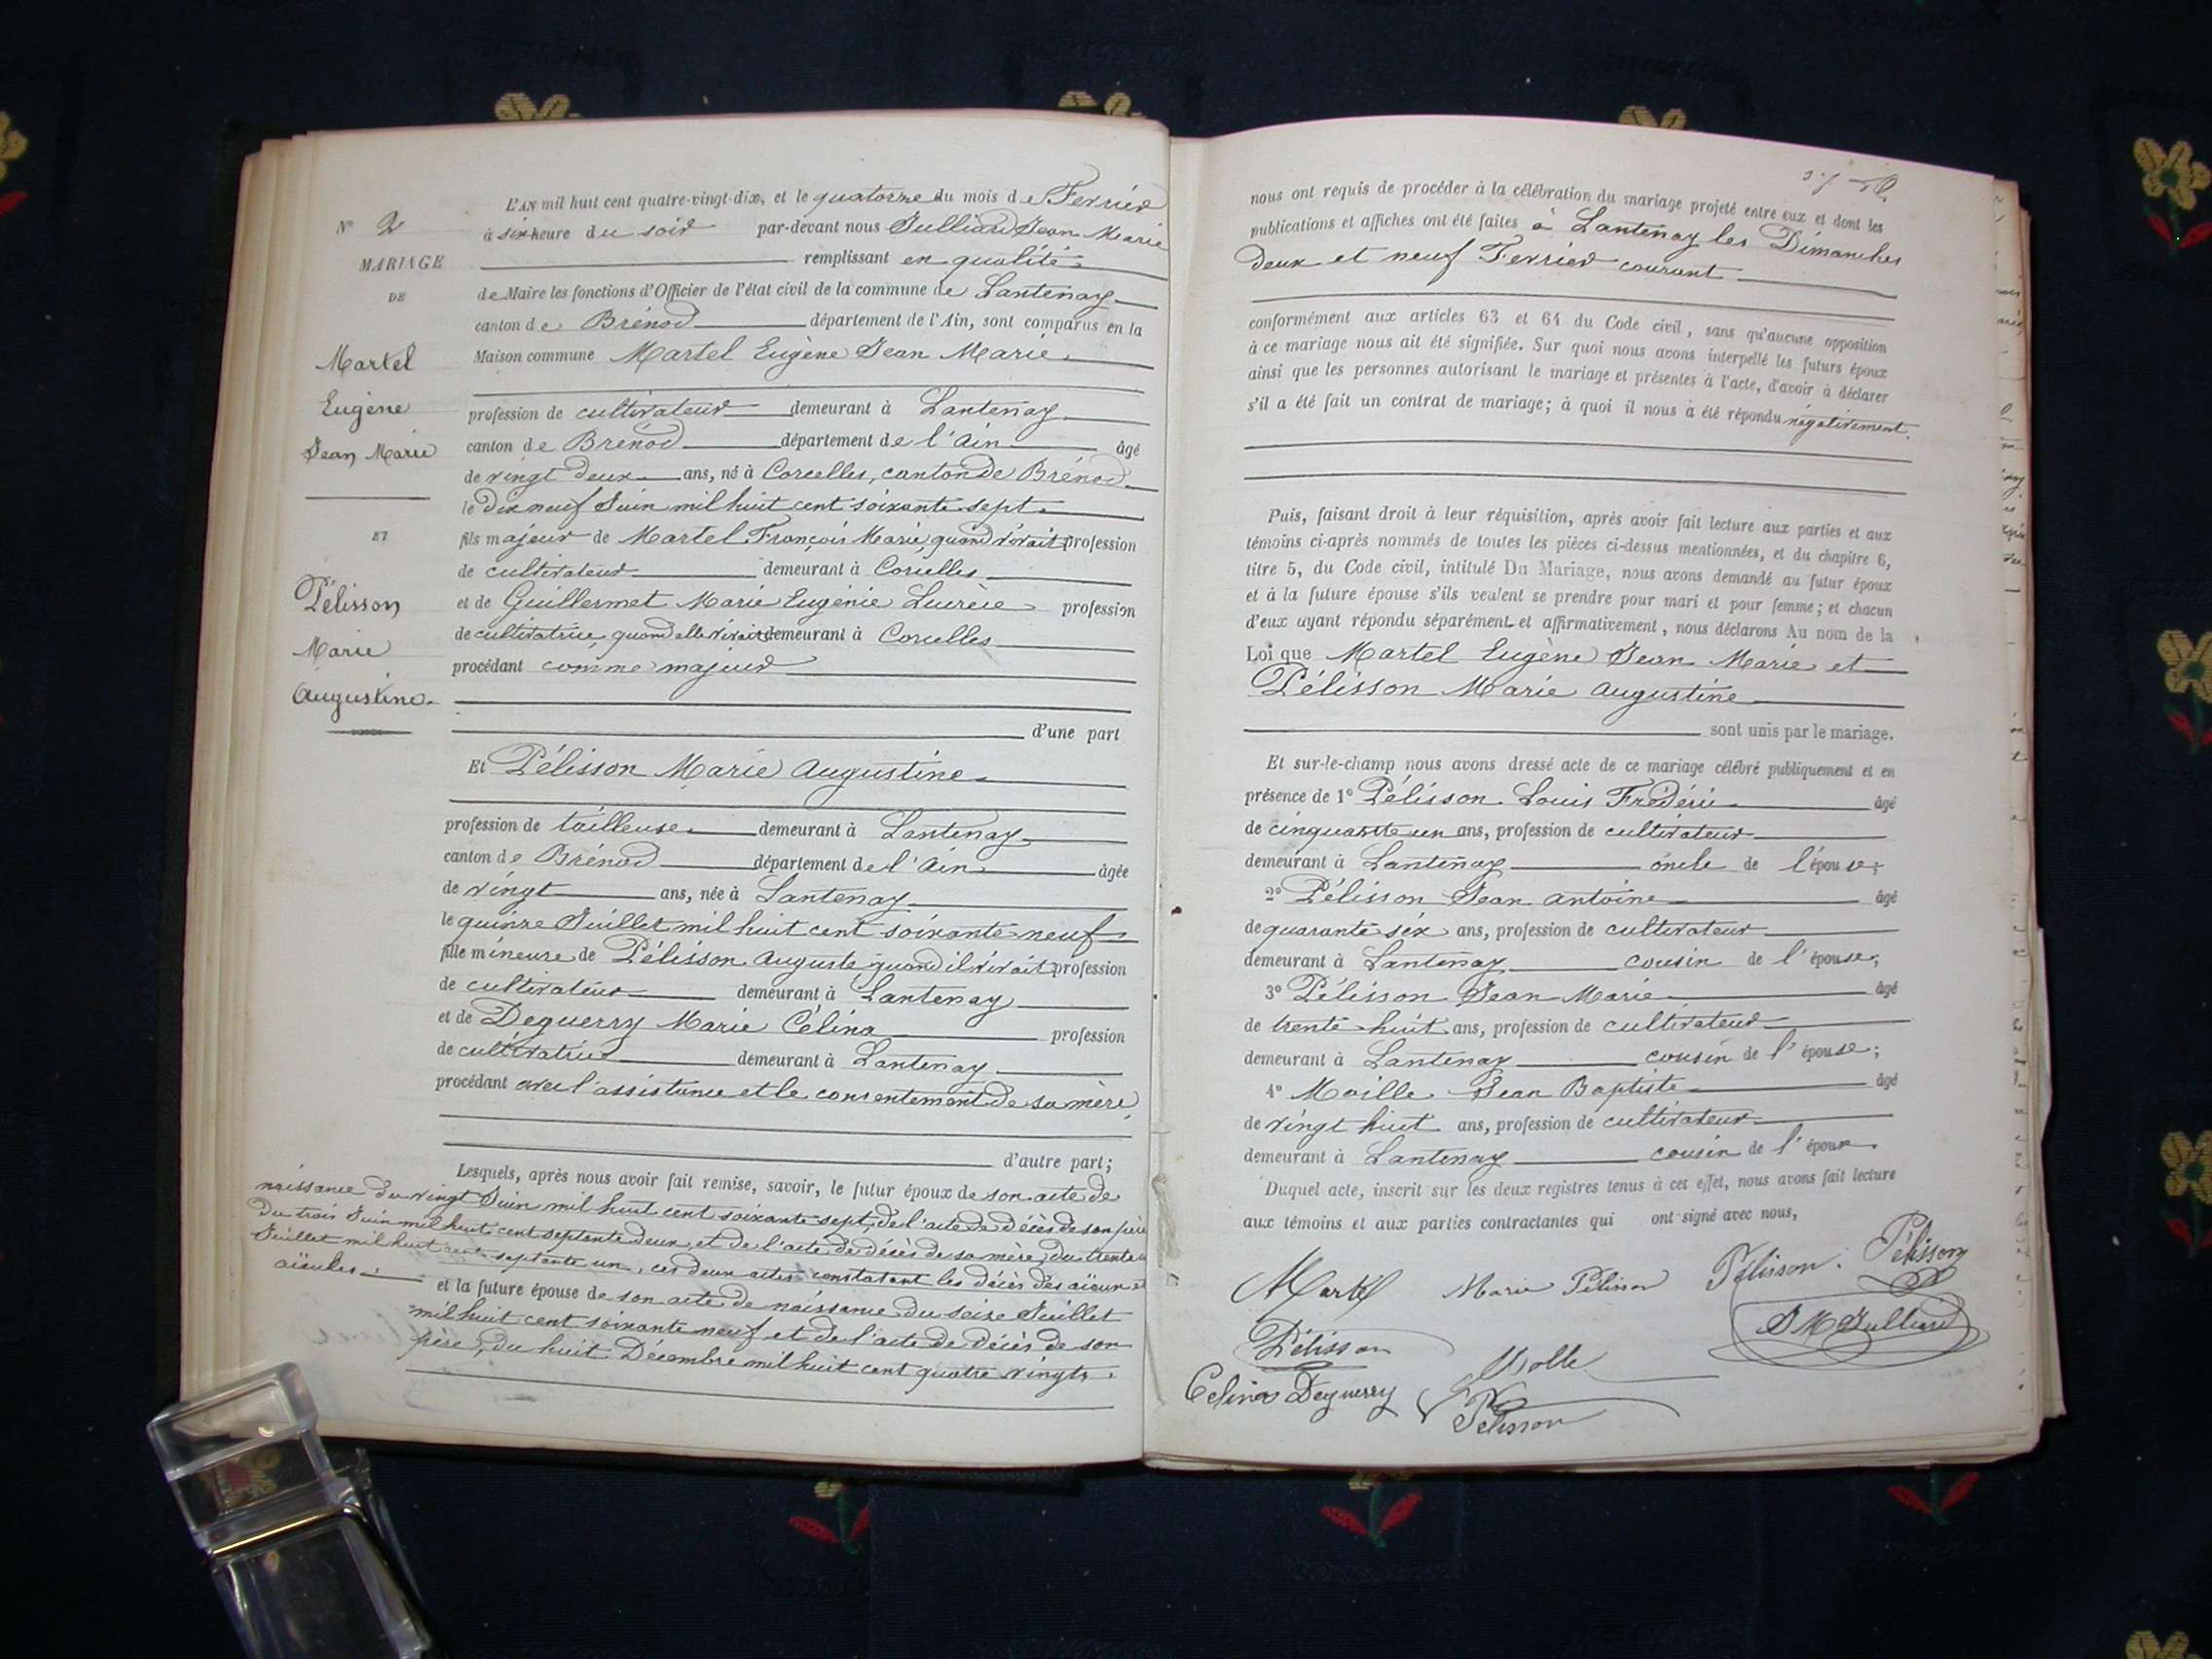 L'AN mil huit cent quatre-vingt-dix, et le quatorze du mois de Fevrier
N° 2
à six heure du soir par-devant nous Julliard Jean Marie
MARIAGE
remplissant en qualité
DE
de Maire les fonctions d'Officier de l'état civil de la commune de Lantenay
canton de Brénod département de l'Ain, sont comparus en la
Maison commune Martel Eugène Jean Marie
Martel
Eugène
Jean Marie
profession de cultivateur demeurant à Lantenay
canton de Brénod département de l'Ain âgé
de vingt deux ans, né à Corcelles, canton de Brénod
le dix neuf Juin mil huit cent soixante sept
ET
fils majeur de Martel François Marie, quand vivait profession
de cultivateur demeurant à Corcelles
Pélisson
Marie
Augustine
et de Guillermet Marie Eugénie Lucrèce profession
de cultivatrice, quand elle vivait demeurant à Corcelles
procédant comme majeur
d'une part
Et Pélisson Marie Augustine
profession de tailleuse demeurant à Lantenay
canton de Brénod département de l'Ain âgée
de vingt ans, née à Lantenay
le quinze Juillet mil huit cent soixante neuf
fille mineure de Pélisson Auguste quand il vivait profession
de cultivateur demeurant à Lantenay
et de Deguerry Marie Célina profession
de cultivatrice demeurant à Lantenay
procédant avec l'assistance et le consentement de sa mère
d'autre part;
Lesquels, après nous avoir fait remise, savoir, le futur époux de son acte de
naissance du vingt Juin mil huit cent soixante sept, de l'acte de décès de son père
du trois Juin mil huit cent septente deux, et de l'acte de décès de sa mère, du trente
Juillet mil huit cent septante un, ces deux actes constatant les décès des aïeux et
aïeules
et la future épouse de son acte de naissance du seize Juillet
mil huit cent soixante neuf et de l'acte de décès de son
père, du huit Décembre mil huit cent quatre vingts.
nous ont requis de procéder à la célébration du mariage projeté entre eux et dont les
publications et affiches ont été faites à Lantenay les Dimanches
deux et neuf Fevrier courant
conformément aux articles 63 et 64 du Code civil, sans qu'aucune opposition
à ce mariage nous ait été signifiée. Sur quoi nous avons interpellé les futurs époux
ainsi que les personnes autorisant le mariage et présentes à l'acte, d'avoir à déclarer
s'il a été fait un contrat de mariage; à quoi il nous a été répondu négativement.
Puis, faisant droit à leur réquisition, après avoir fait lecture aux parties et aux
témoins ci-après nommés de toutes les pièces ci-dessus mentionnées, et du chapitre 6,
titre 5, du Code civil, intitulé Du Mariage, nous avons demandé au futur époux
et à la future épouse s'ils veulent se prendre pour mari et pour femme; et chacun
d'eux ayant répondu séparément et affirmativement, nous déclarons Au nom de la
Loi que Martel Eugène Jean Marie et
Pélisson Marie Augustine
sont unis par le mariage.
Et sur-le-champ nous avons dressé acte de ce mariage célébré publiquement et en
présence de 1° Pélisson Louis Frédéric âgé
de cinquante un ans, profession de cultivateur
demeurant à Lantenay oncle de l'épouse;
2° Pélisson Jean Antoine âgé
de quarante six ans, profession de cultivateur
demeurant à Lantenay cousin de l'épouse;
3° Pélisson Jean Marie âgé
de trente huit ans, profession de cultivateur
demeurant à Lantenay cousin de l'épouse;
4° Moille Jean Baptiste âgé
de vingt huit ans, profession de cultivateur
demeurant à Lantenay cousin de l'époux
Duquel acte, inscrit sur les deux registres tenus à cet effet, nous avons fait lecture
aux témoins et aux parties contractantes qui ont signé avec nous,
Martel Marie Pélisson Pélisson Pélisson
J M Julliard
Pélisson
Célina Deguerry
Pélisson